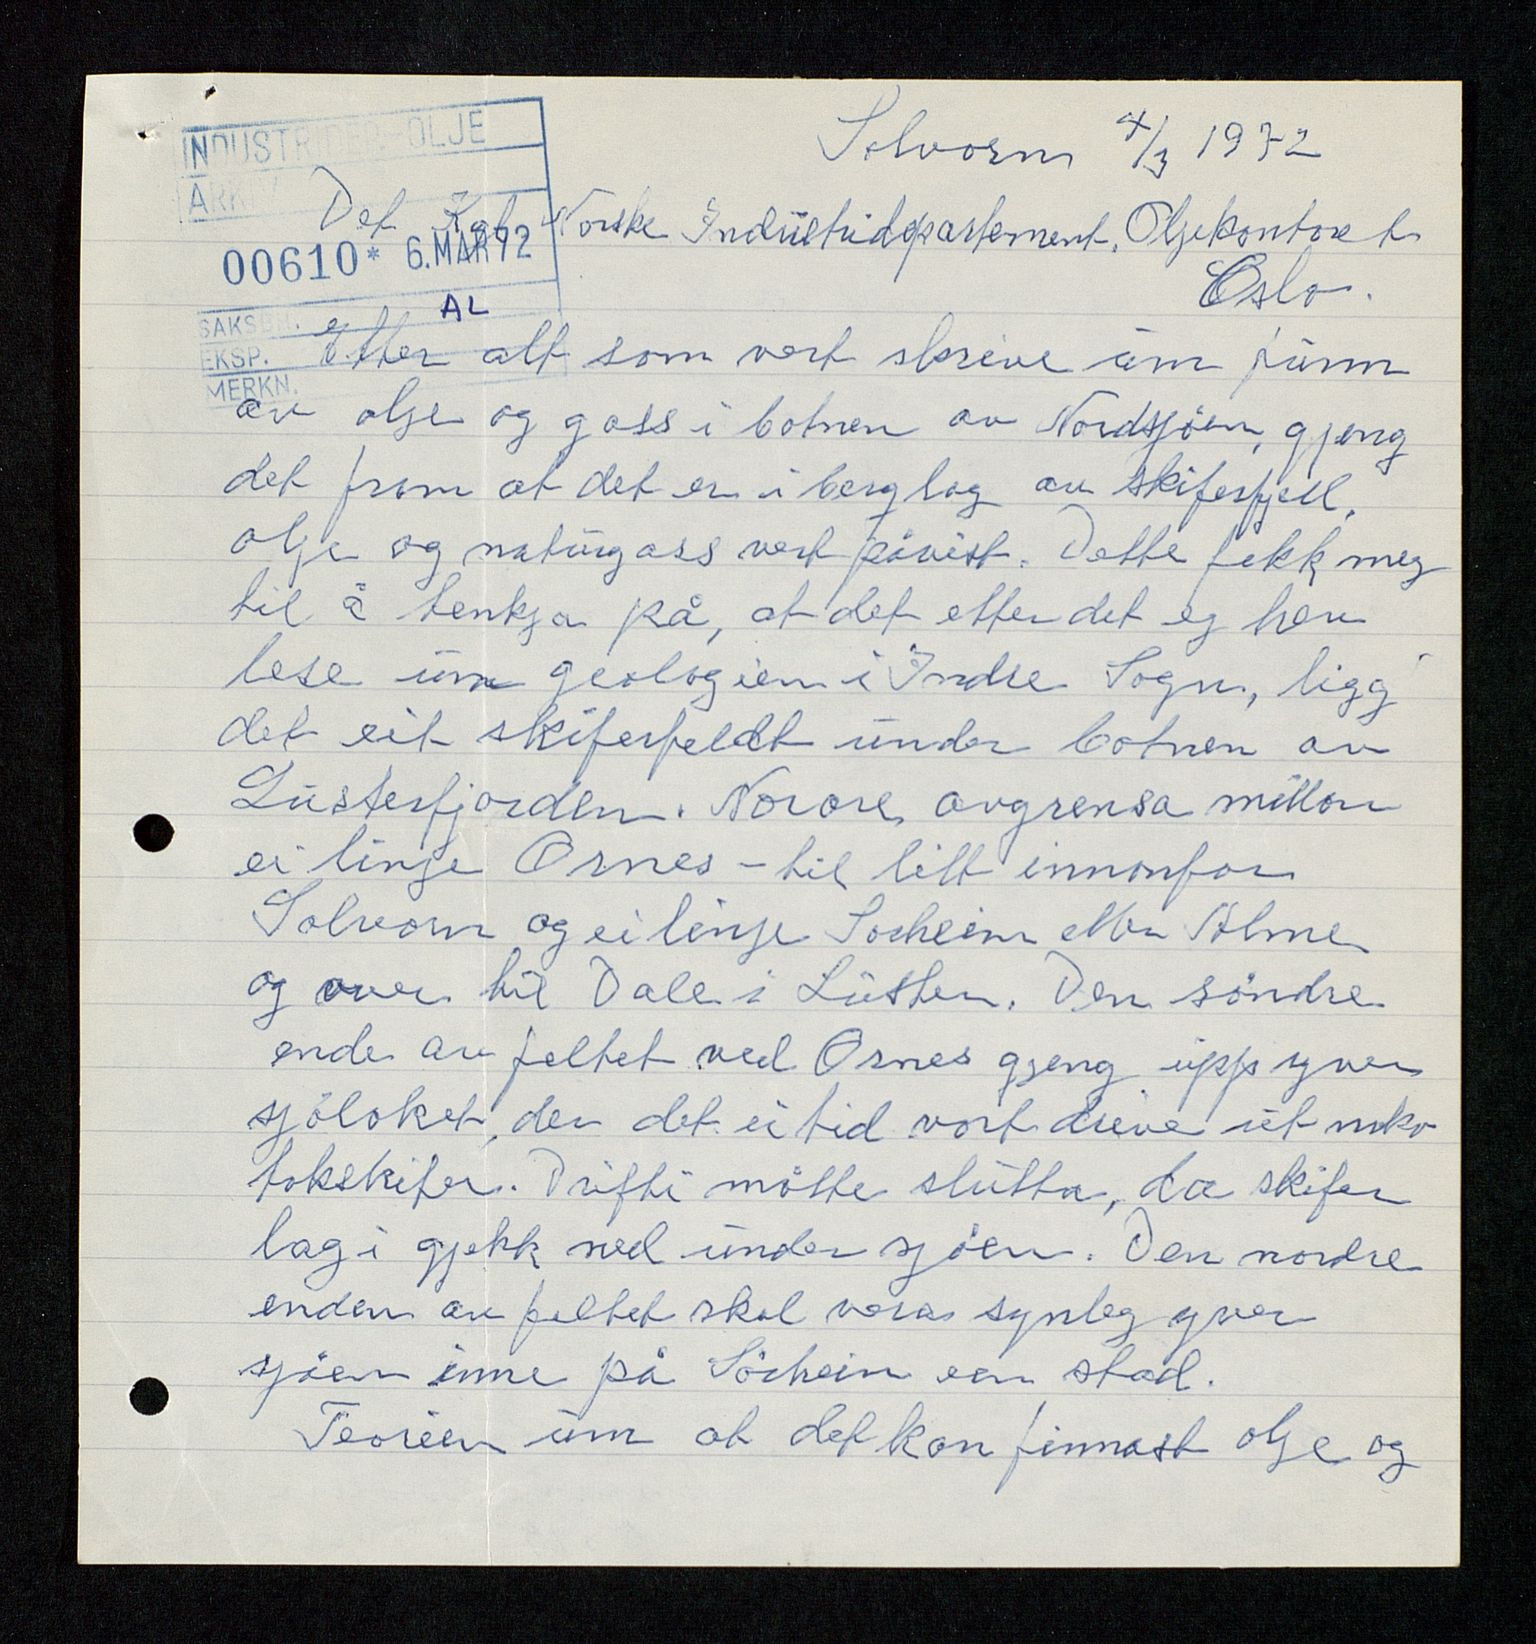 INDUSTRIDEP. OLJE
ARKIV
00610* 6.MAR72
AL
SAKSBH.
EKSP.
MERKN.
Solvorn 4/3 1972
Det Kgl. Norske Industridepartement, Oljekontoret
Oslo.
Etter alt som vert skreve um funn
av olje og gass i botnen av Nordsjöen, gjeng
det fram at det er i berglag av skiferfjell,
olje og naturgass vert påvist. Dette fekk meg
til å tenkja på, at det etter det eg hev
lese um geologien i Indre Sogn, ligg
det eit skiferfeldt under botnen av
Lusterfjorden. avgrensa millom
ei linje Ornes - til litt innanfor
Solvorn og ei linje Sörheim eller
og over til Dale i Luster. Den söndre
ende av feltet ved Ornes gjeng upp yver
sjöloket, der det ei tid vort dreve ut noko
takskifer. Drifti måtte slutta, da skifer
lagi gjekk ned under sjöen. Den nordre
enden av feltet skal vera synleg yver
sjöen inne på Sörheim ein stad.
Teorien um at det kan finnast olje og